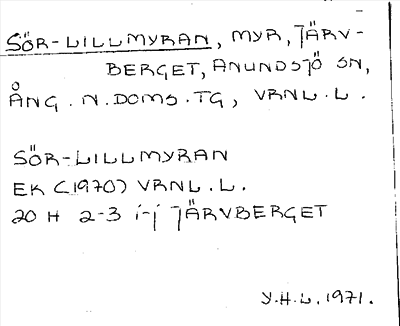 SÖR-LILLMYRAN, MYR, JÄRV-
BERGET, ANUNDSJÖ SN,
ÅNG. N. DOMS. TG, VRNL.L.
SÖR-LILLMYRAN
EK (1970) VRNL.L.
20 H 2-3 i-j JÄRVBERGET
Y.H.L. 1971.